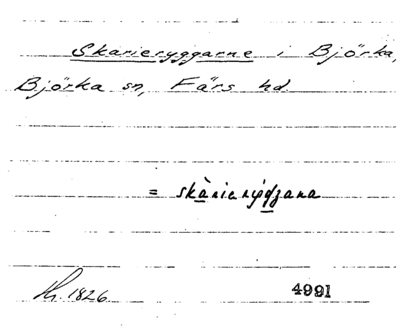 Skarieryggarne i Björka,
Björka sn, Färs hd
= skàrierýdzana
Kr. 1826. 4991